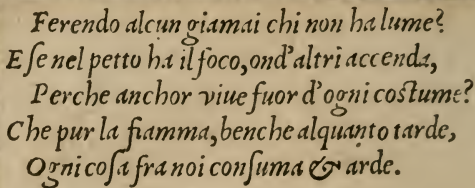 Ferendo alcun giamai chi non ha lume?
E ſe nel petto ha il foco, ond'altri accenda,
Perche anchor viue fuor d'ogni coſtume?
Che pur la fiamma, benche alquanto tarde,
Ogni coſa fra noi conſuma & arde.